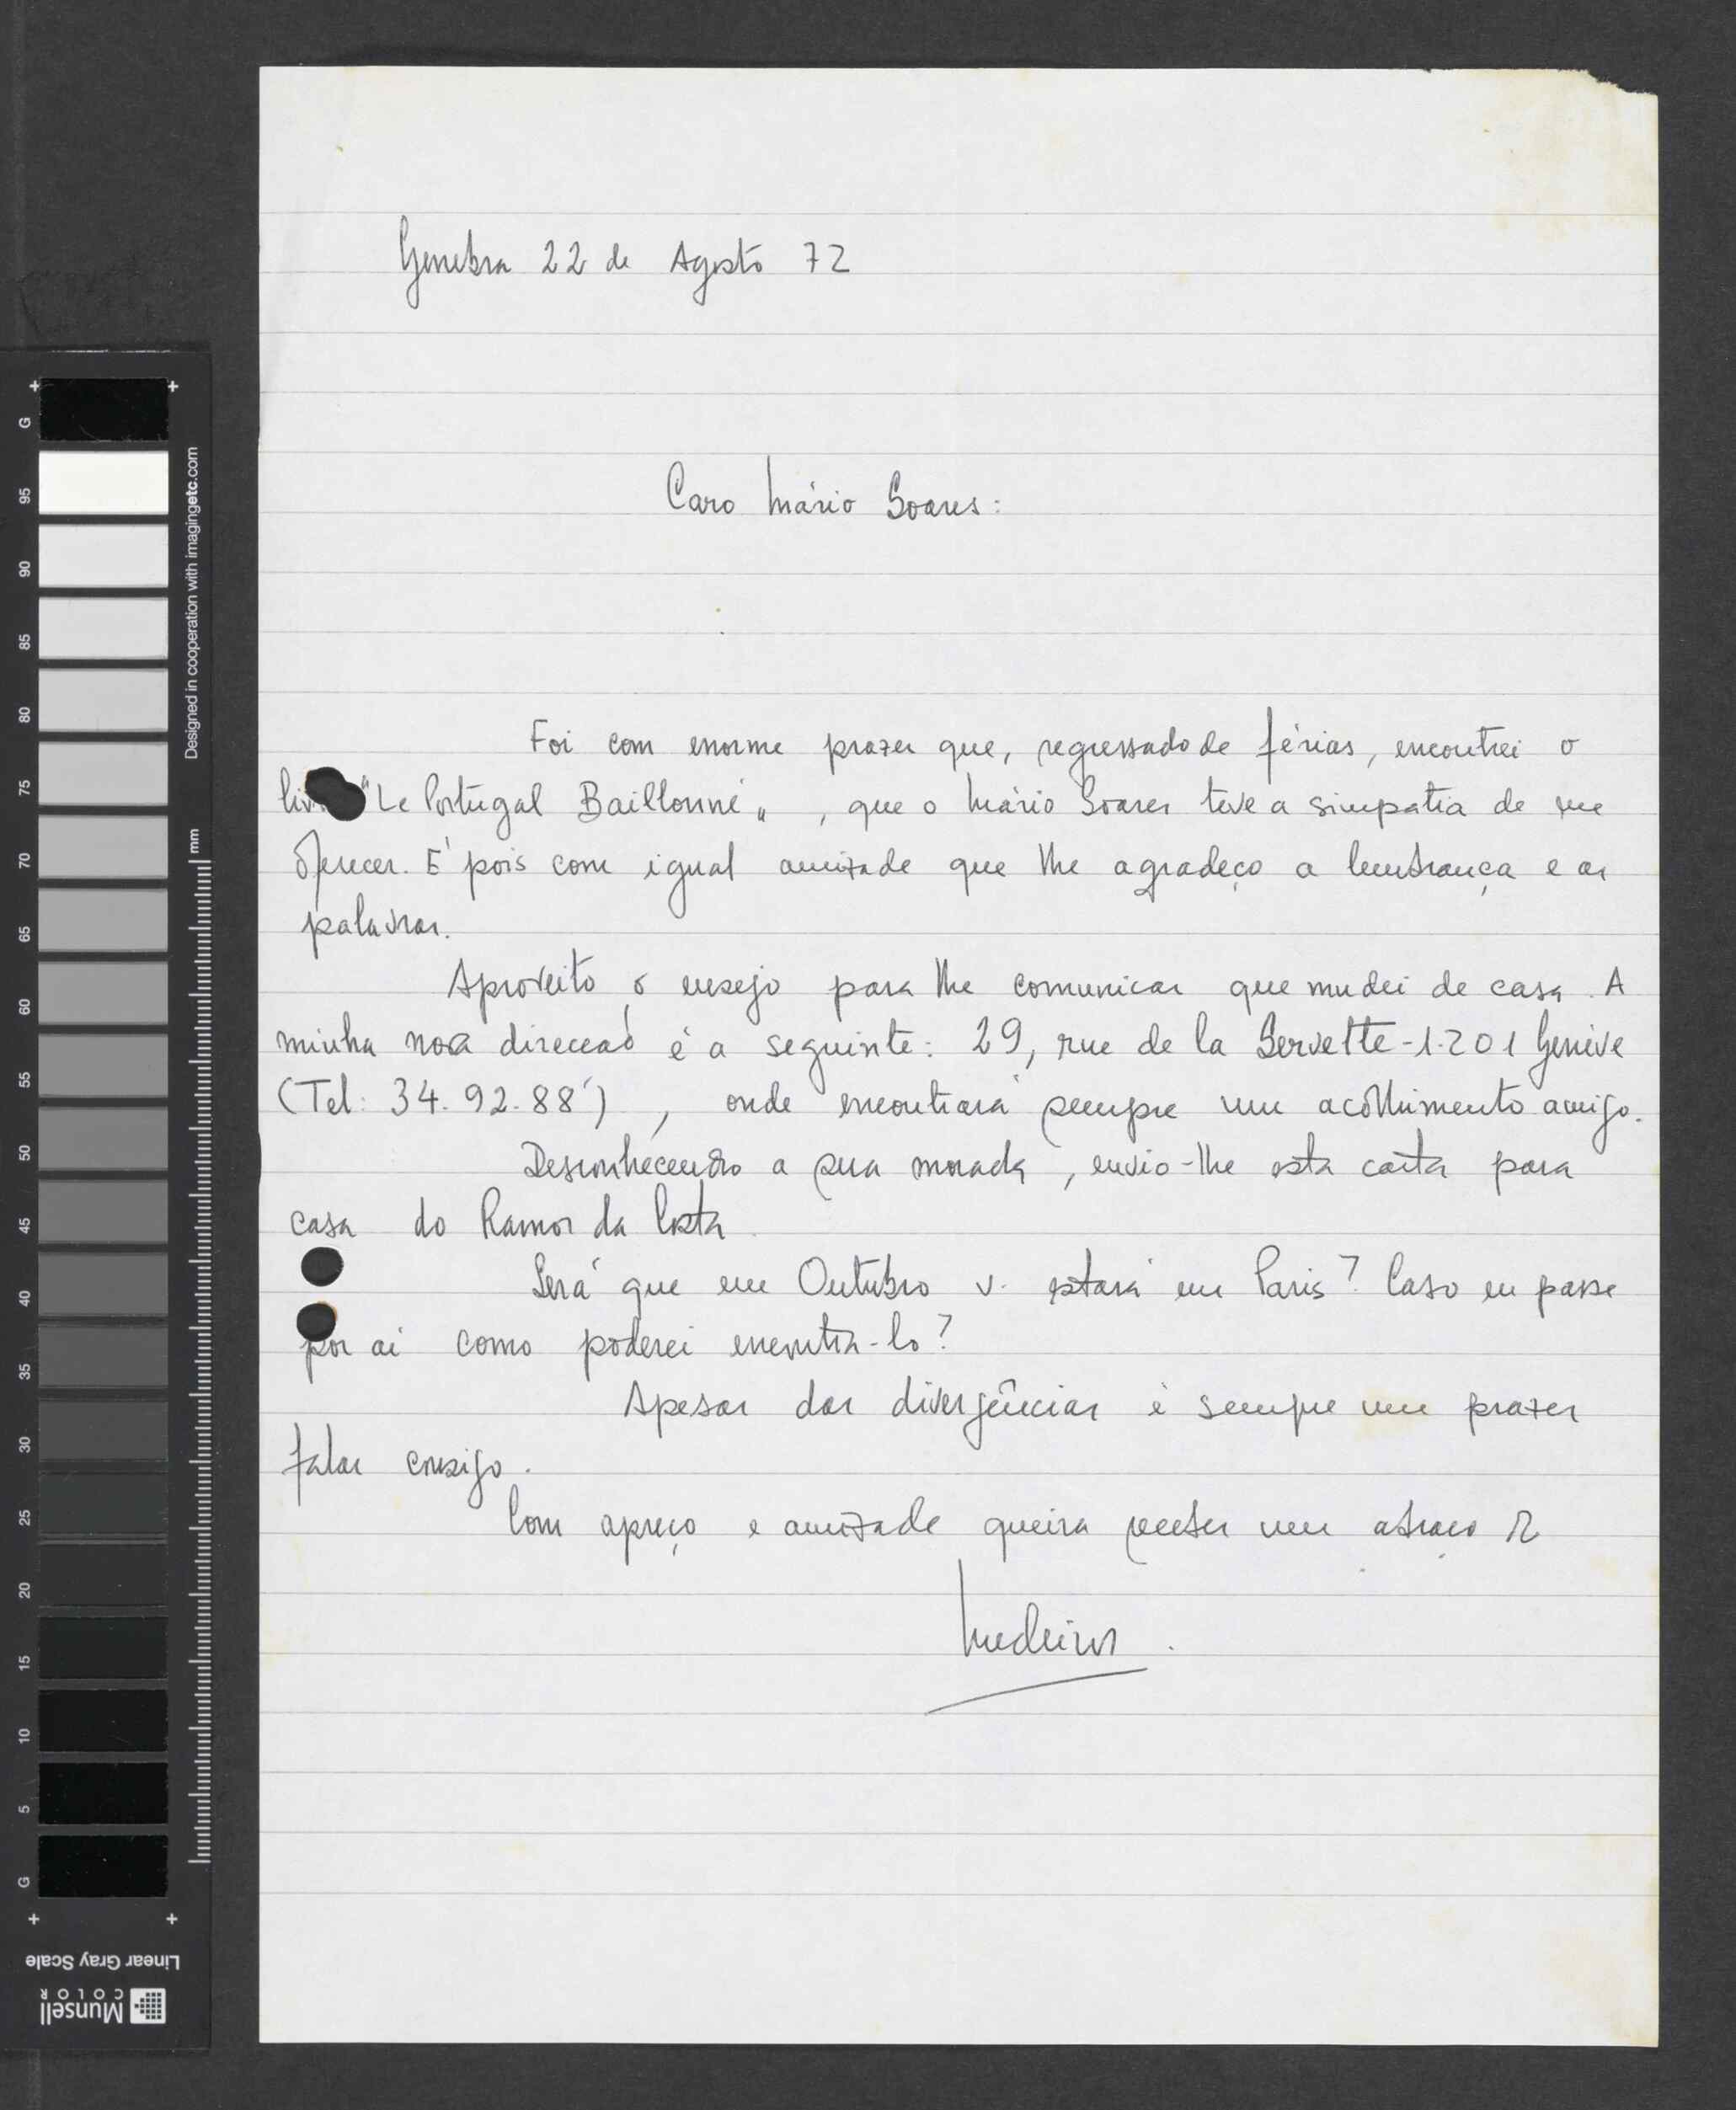 Genebra 22 de Agosto 72
Caro Mário Soares:
Foi com enorme prazer que, regressado de férias, encontrei o
liv "Le Portugal Baillonné", que o Mário Soares teve a simpatia de me
oferecer. É pois com igual amizade que lhe agradeço a lembrança e as
palavras.
Aproveito o ensejo para lhe comunicar que mudei de casa. A
minha nova direccão é a seguinte: 29, rue de la Servette - 1.201 Genève
(Tel: 34.92.88), onde encontrará sempre um acolhimento amigo.
Desconhecendo a sua morada, envio-lhe esta carta para
casa do Ramos da Costa
Será que em Outubro v. estará em Paris? Caso eu passe
por ai como poderei encontra-lo?
Apesar das divergências é sempre um prazer
falar consigo.
Com apreço e amizade queira receber um abraço de
Medeiros.
G 95 90 85 80 75 70 65 60 55 50 45 40 35 30 25 20 15 10 5 G
Designed in cooperation with imagingetc.com
mm
Linear Gray Scale
Munsell
COLOR